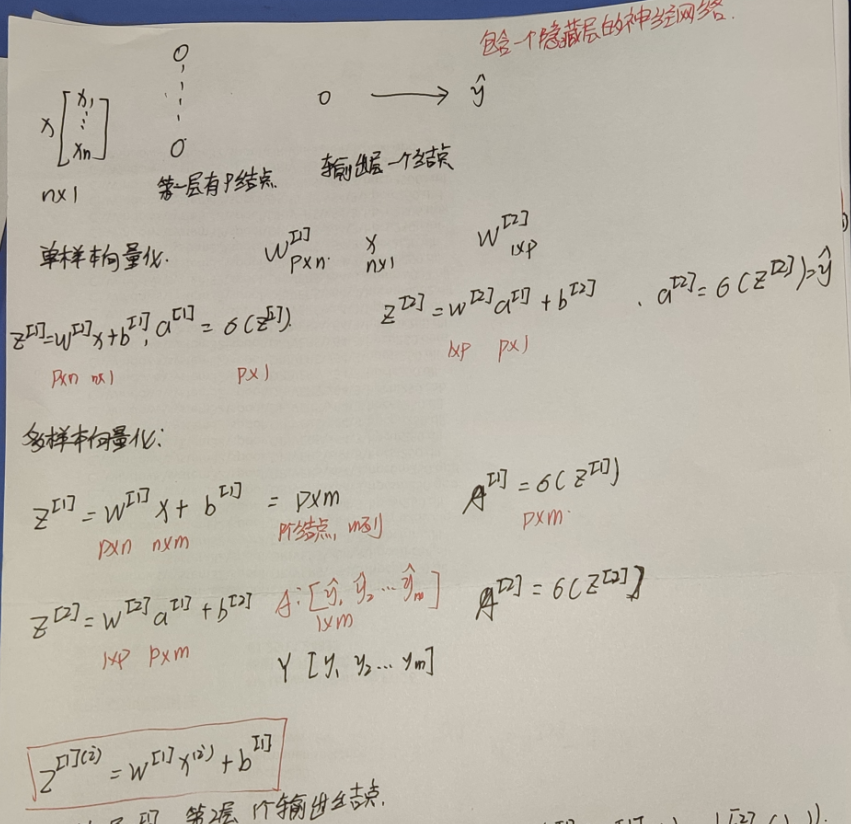 包含一个隐藏层的神经网络.
x [x₁ ⋮ xn] 0 0 0 → ŷ
n×1 第一层有P结点. 输出层一个结点
单样本向量化. W^[1] p×n. x n×1 W^[2] 1×p
z^[1]=w^[1]x+b^[1], a^[1]=6(z^[1]). z^[2]=w^[2]a^[1]+b^[2] . a^[2]=6(z^[2])=ŷ
p×n n×1 p×1 1×p p×1
多样本向量化:
z^[1]=w^[1]x+b^[1] = p×m A^[1]=6(z^[1])
p×n n×m P个结点, m列 p×m.
z^[2]=w^[2]a^[1]+b^[2] A: [ŷ₁ ŷ₂ ... ŷm] A^[2]=6(z^[2])
1×p p×m 1×m
Y [y₁ y₂ ... ym]
z^[1](i)=w^[1]x^(i)+b^[1]
第2层 1个输出结点.